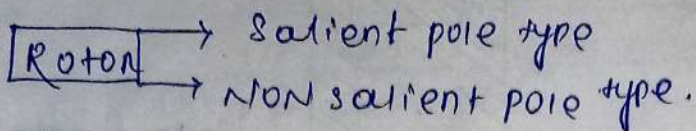 Rotor
Salient pole type
NON salient pole type.